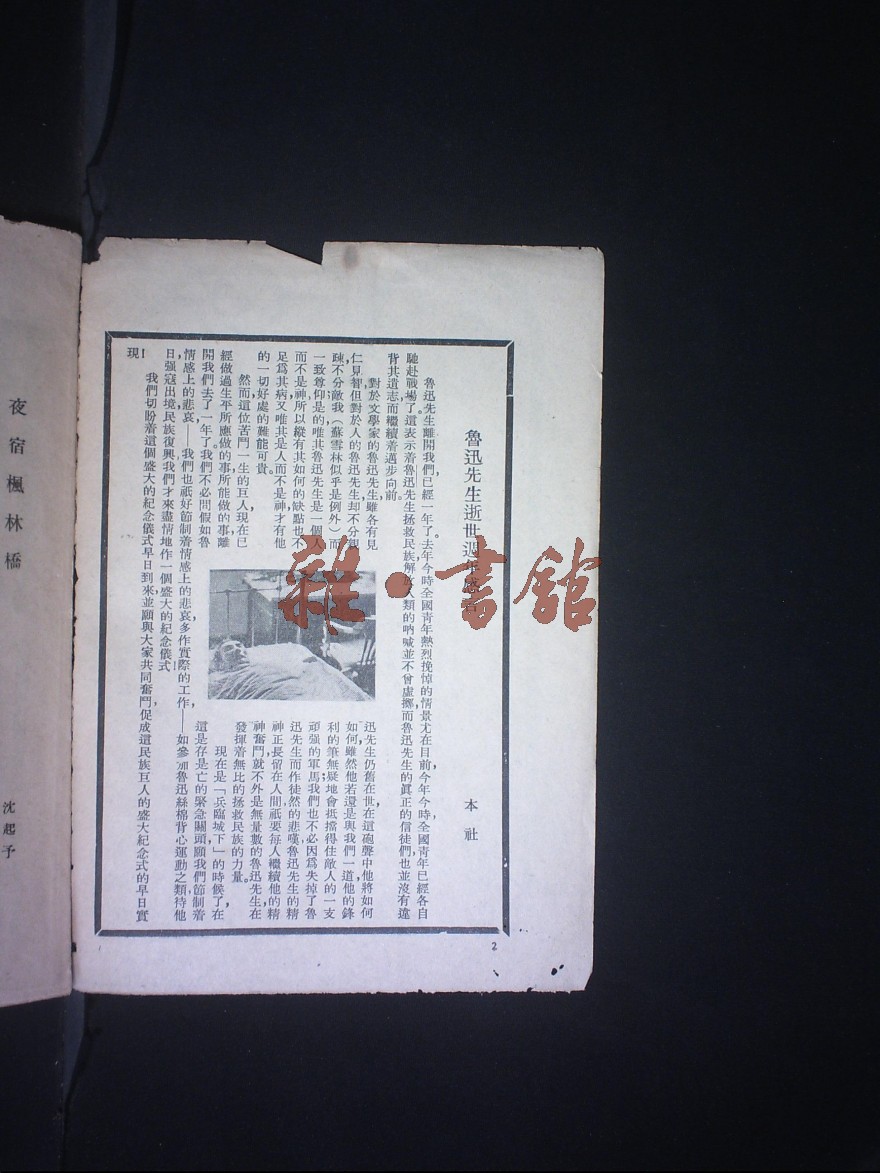 魯迅先生逝世週年感言
本社
魯迅先生離開我們已經一年了。去年今時全國青年熱烈挽悼的情景尤在目前，今年今時，全國青年已經各自
馳赴戰場了。這表示着魯迅先生拯救民族解放人類的吶喊並不曾虛擲，而魯迅先生的眞正的信徒們，也並沒有違
背其遺志而繼續着邁步向前。
對於文學家的魯迅先生，雖各有見
仁見智，但對於人的魯迅先生，却不分親
疎，不分敵我（蘇雪林似乎是例外）而
一致尊仰，是的，唯其魯迅先生是一個人
而不是神，所以縱有其如何的缺點也不
足爲其病，又唯其是人而不是神，才有他
的一切好處的難能可貴。
然而這位苦鬥一生的巨人，現在已
經做過生平所應做的事，所能做的事，離
開我們去了一年了。我們不必問假如魯
迅先生仍舊在世，在這砲聲中他將如何
如何，雖然他若還是與我們一道，他的鋒
利的筆無疑地會抵擋得住敵人的一支
頑强的軍馬；我們也不必因爲失掉了魯
迅先生而作徒然的悲嘆，魯迅先生的精
神正長留在人間，祇要每人繼續他的精
神奮鬥，就不外是無量數的魯迅先生，在
發揮着無比的拯救民族的力量。
現在是「兵臨城下」的時候了，在
這是存是亡的緊急關頭，願我們節制着
情感上的悲哀——我們也祇好節制着情感上的悲哀，多作實際的工作，——如參加魯迅絲棉背心運動之類，待他
日，强寇出境，民族復興，我們才來盡情地作一個盛大的紀念儀式！
我們切盼着這個盛大的紀念儀式早日到來，並願與大家共同奮鬥，促成這民族巨人的盛大紀念式的早日實
現！
2
夜宿楓林橋
沈起予
雜·書館